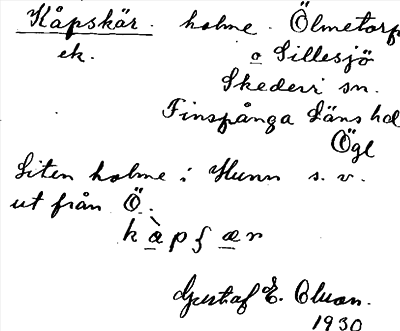 Kåpskär. holme. Ölmetorp
ek. o Sillesjö
Skedevi sn.
Finspånga Läns hd
Ögl
Liten holme i Hunn s. v.
ut från Ö.
Gustaf E.
1930